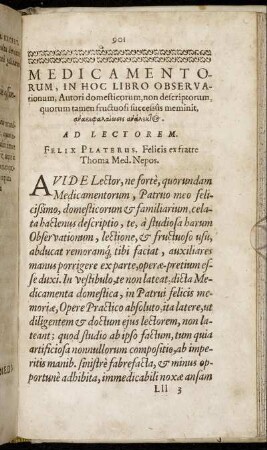 901
MEDICAMENTO-
RUM, IN HOC LIBRO OBSERVA-
tionum, Autori domesticorum, non descriptorum,
quorum tamen fructuosi successus meminit,
AD LECTOREM.
FELIX PLATERUS, Felicis ex fratre
Thoma Med. Nepos.
AVIDE Lector, ne fortè, quorundam
Medicamentorum, Patruo meo feli-
cissimo, domesticorum & familiarium, cela-
ta hactenus descriptio, te, à studiosa harum
Observationum, lectione, & fructuoso usu,
abducat remoramq́; tibi faciat, auxiliares
manus porrigere ex parte, operæ-pretium es-
se duxi. In vestibulo, te non lateat, dicta Me-
dicamenta domestica, in Patrui felicis me-
moriæ, Opere Practico absoluto, ita latere, ut
diligentem & doctum ejus lectorem, non la-
teant; quod studio ab ipso factum, tum quia
artificiosa nonnullorum compositio, ab impe-
ritis manib. sinistrè fabrefacta, & minus op-
portunè adhibita, immedicabili noxæ ansam
Lll 3